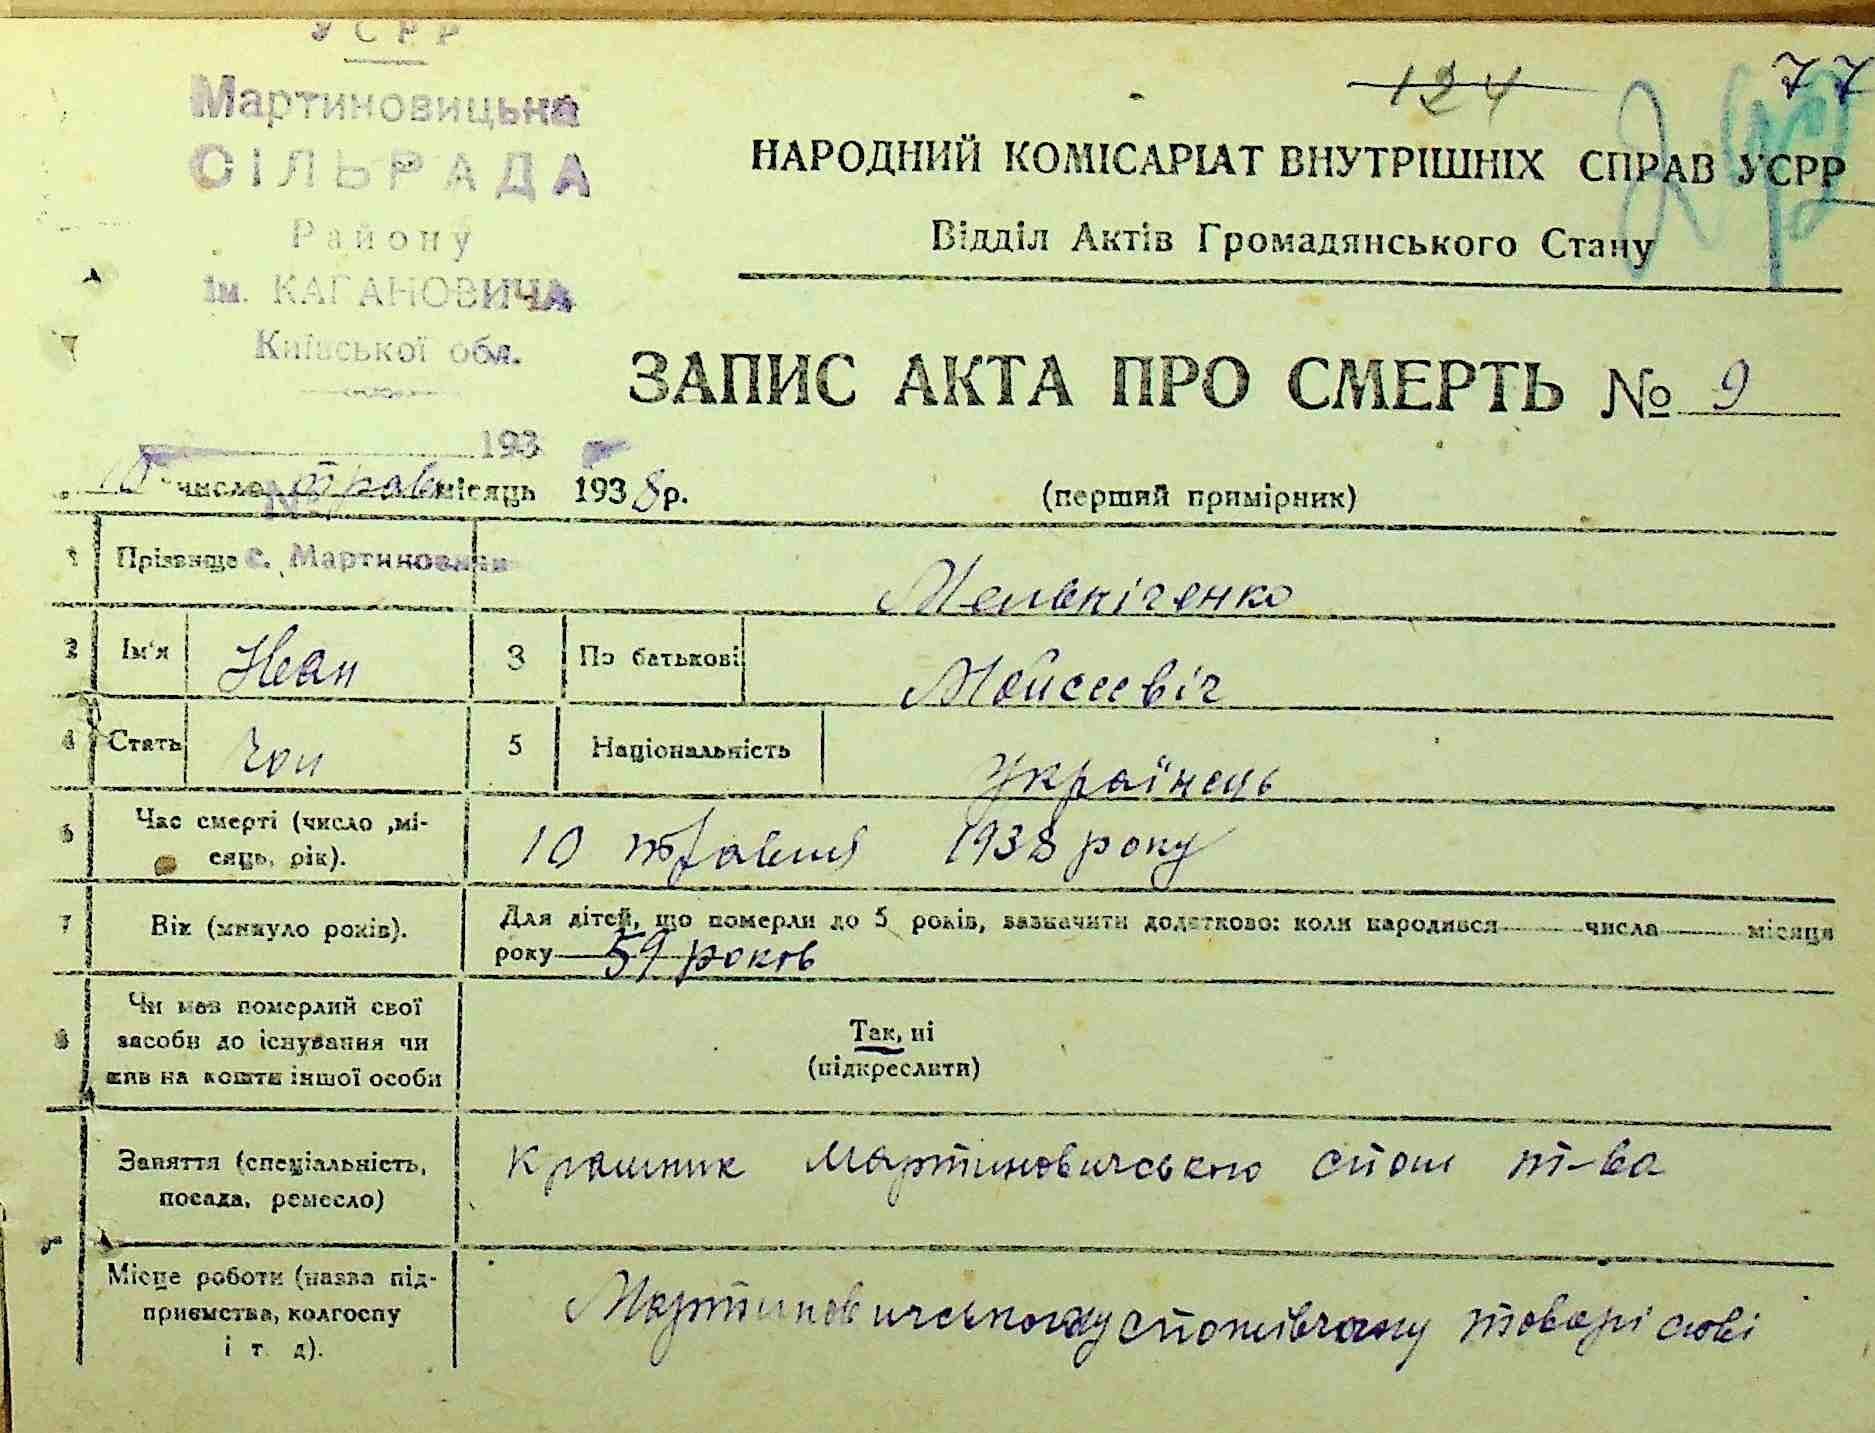 УСРР
Мартиновицька
СІЛЬРАДА
Району
ім. КАГАНОВИЧА
Київської обл.
193
№
с. Мартиновичи
124
77
НАРОДНИЙ КОМІСАРІАТ ВНУТРІШНІХ СПРАВ УСРР
Відділ Актів Громадянського Стану
ЗАПИС АКТА ПРО СМЕРТЬ № 9
10 число трав місяць 1938 р.
(перший примірник)
1 Прізвище Мельніченко
2 Ім'я Иван 3 По батькові Мойсеевіч
4 Стать Чол 5 Національність Українець
6 Час смерті (число, мі-
сяць, рік). 10 травня 1938 року
7 Вік (минуло років). Для дітей, що померли до 5 років, зазначити додатково: коли народився числа місяця
року 59 років
8 Чи мав померлий свої
засоби до існування чи
жив на кошти іншої особи
Так, ні
(підкреслити)
Заняття (спеціальність,
посада, ремесло) Мартиновичського спож т-ва
Місце роботи (назва під-
приємства, колгоспу
і т. д).
Мартиновичському споживчому товарісові